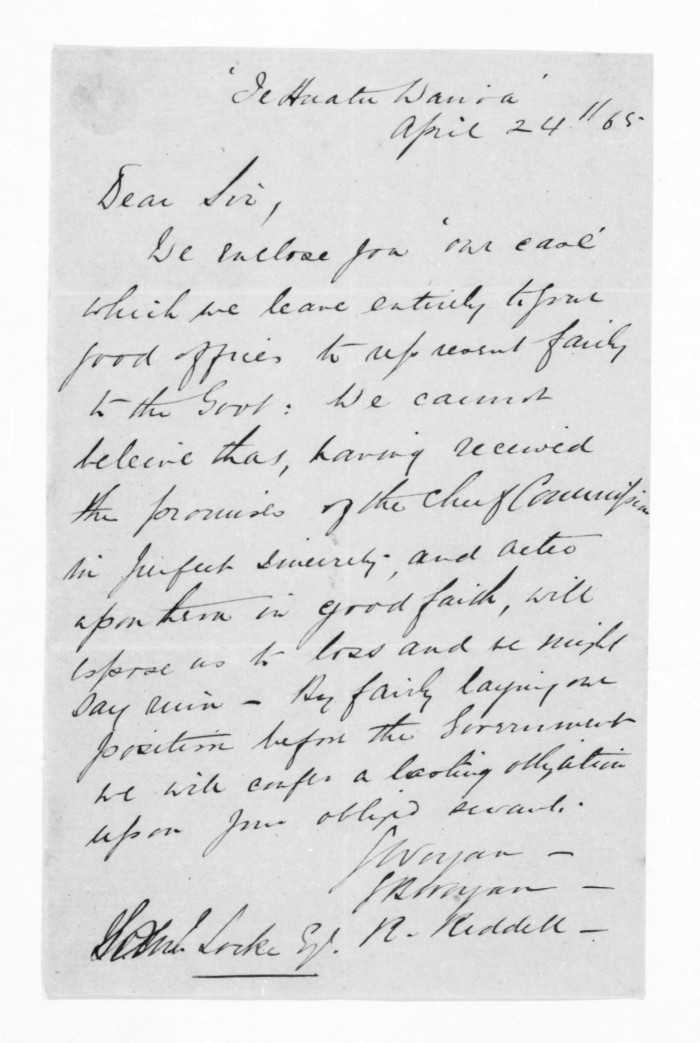 'Te Huatu Wairoa'
April 24th 65
Dear Sir,
We enclose you 'our case'
which we leave entirely to your
good offices to represent fairly
to the Govt: We cannot
beleive that, having received
the promises of the Chief Commission
in perfect sincerity, and acted
upon them in good faith, will
expose us to loss and we might
say ruin - By fairly laying our
position before the Government
we will confer a lasting obligation
upon your oblig'd servants.
G Worgan -
G B Worgan -
R. Riddell -
Locke Esq.